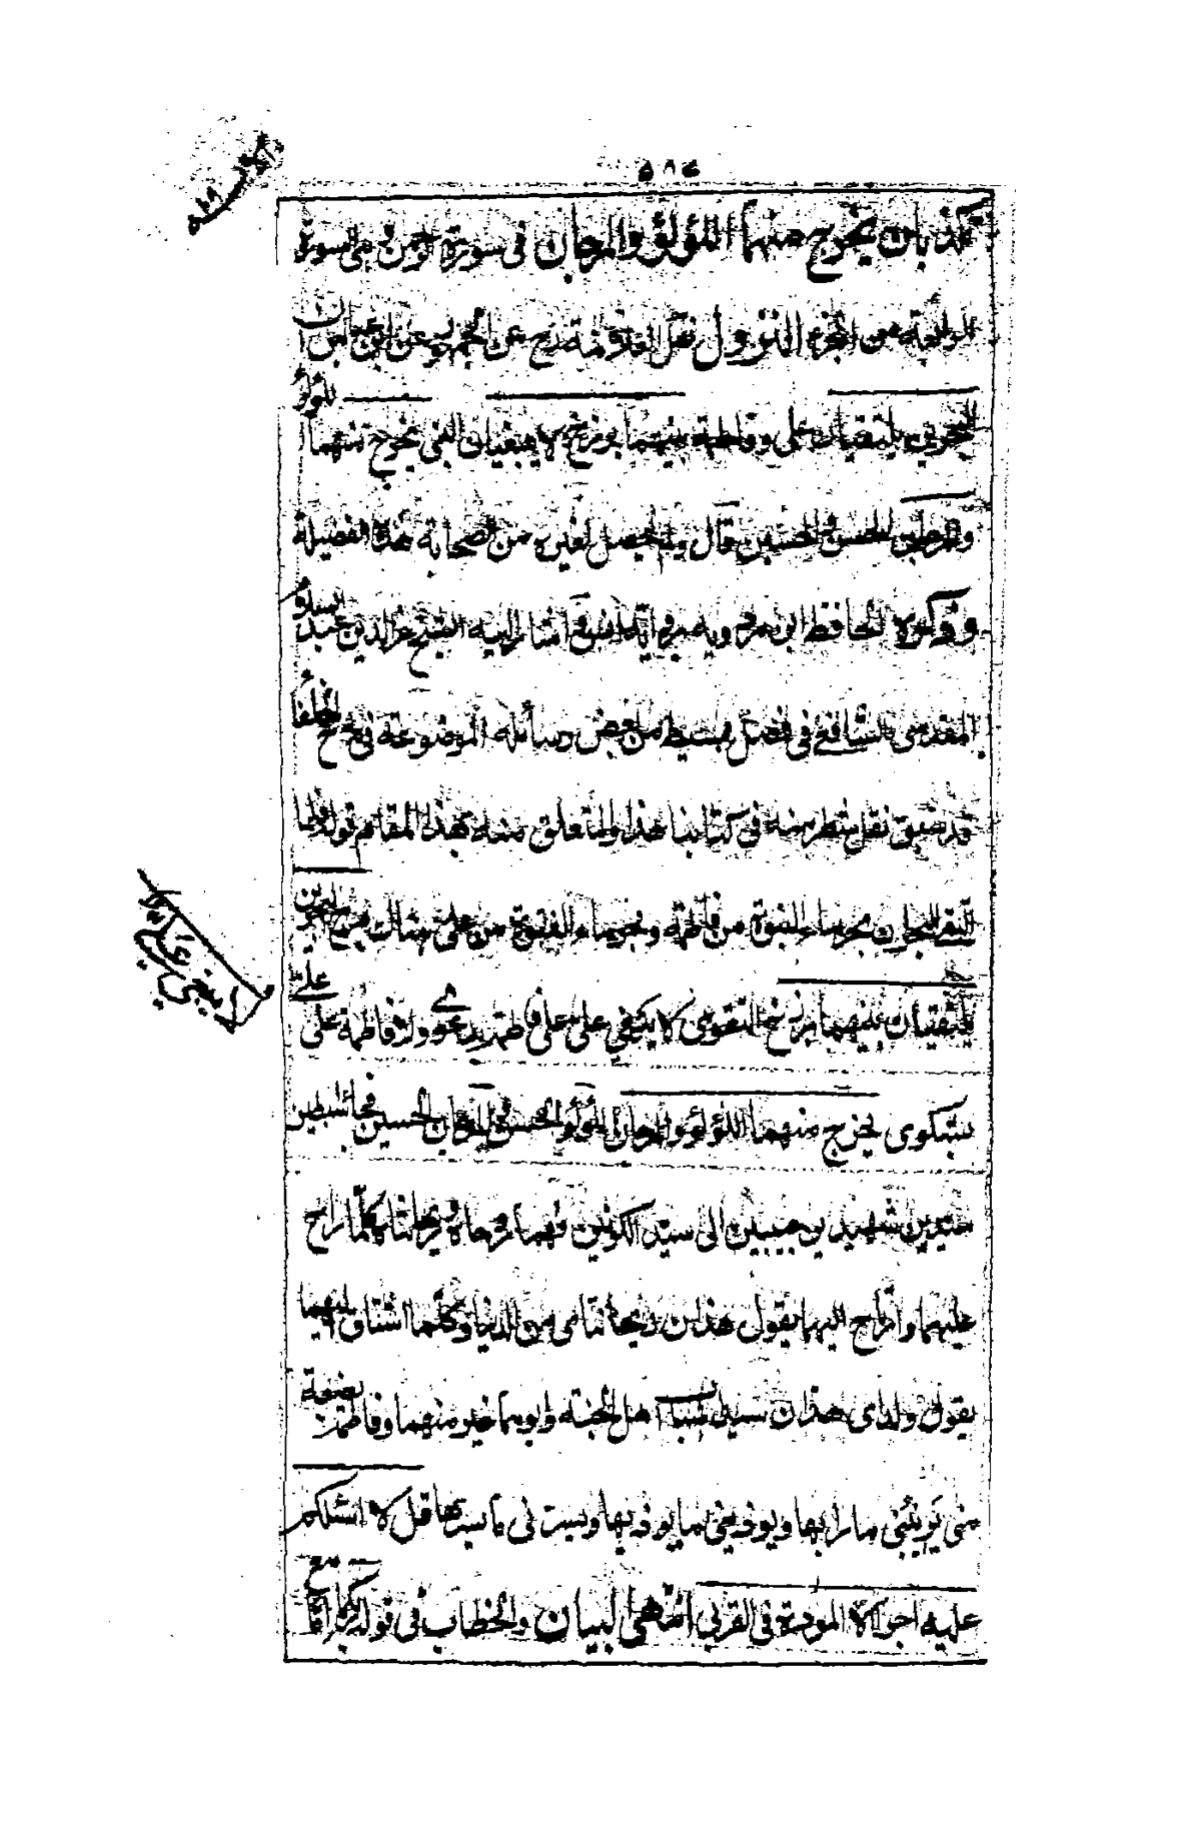 ٥٨٤
تكذبان يخرج منهما اللؤلؤ والمرجان في سورة الرحمن
نقل العلامة عن ابن عباس ان
البحرين يلتقيان علي وفاطمة بينهما برزخ لا يبغيان النبي يخرج منهما اللؤلؤ
والمرجان الحسن والحسين قال ولم يحصل لغيره من الصحابة هذه الفضيلة
وذكره الحافظ ابن اشار اليه الشيخ عزالدين عبد السلام
المقدسي الشافعي في فصل من بعض رسائله الموضوعة في مدح الخلفا
قد سبق نقل شطر منه في كتابنا هذا والمتعلق منه بهذا المقام قوله فلما
التقى البحران بحر ماء النبوة من فاطمة وبحر ماء الفتوة من علي هنالك مرج البحرين
يلتقيان بينهما برزخ التقوى لا يبغي علي على فاطمة بدعوى ولا فاطمة على علي
بشكوى يخرج منهما اللؤلؤ والمرجان اللؤلؤ الحسن والمرجان الحسين فجا السبطين
شهيدين حبيبين الى سيد الكونين فهما روحاه وريحانتاه كلما راح
عليهما وارتاح اليهما يقول هذان ريحانتاي من الدنيا وكلما اشتاق اليهما
يقول ولداي هذان سيدا شباب اهل الجنة وابوهما خير منهما وفاطمة بضعة
مني يريبني ما رابها ويوذيني ما يوذيها ويسرني ما يسرها قل لا اسئلكم
عليه اجرا الا المودة في القربى انتهى البيان والخطاب في قوله
لا يبغي علي